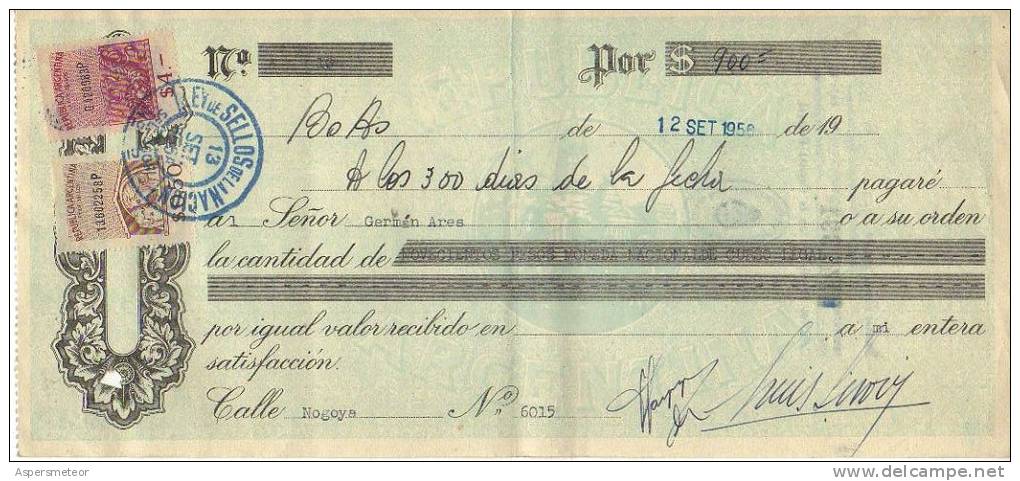 Nº
Por $ 900=
BsAs de 12 SET 1958 de 19
A los 300 dias de la fecha pagaré
al Señor Germán Ares o a su orden
la cantidad de NOVECIENTOS PESOS MONEDA NACIONAL DE CURSO LEGAL.
por igual valor recibido en a mi entera
satisfacción.
Calle Nogoya Nº 6015
REPUBLICA ARGENTINA
$4.-
REPUBLICA ARGENTINA
13602258P
LEY DE SELLOS DE LA NACION
13
SET
Aspersmeteor
delcampe.net